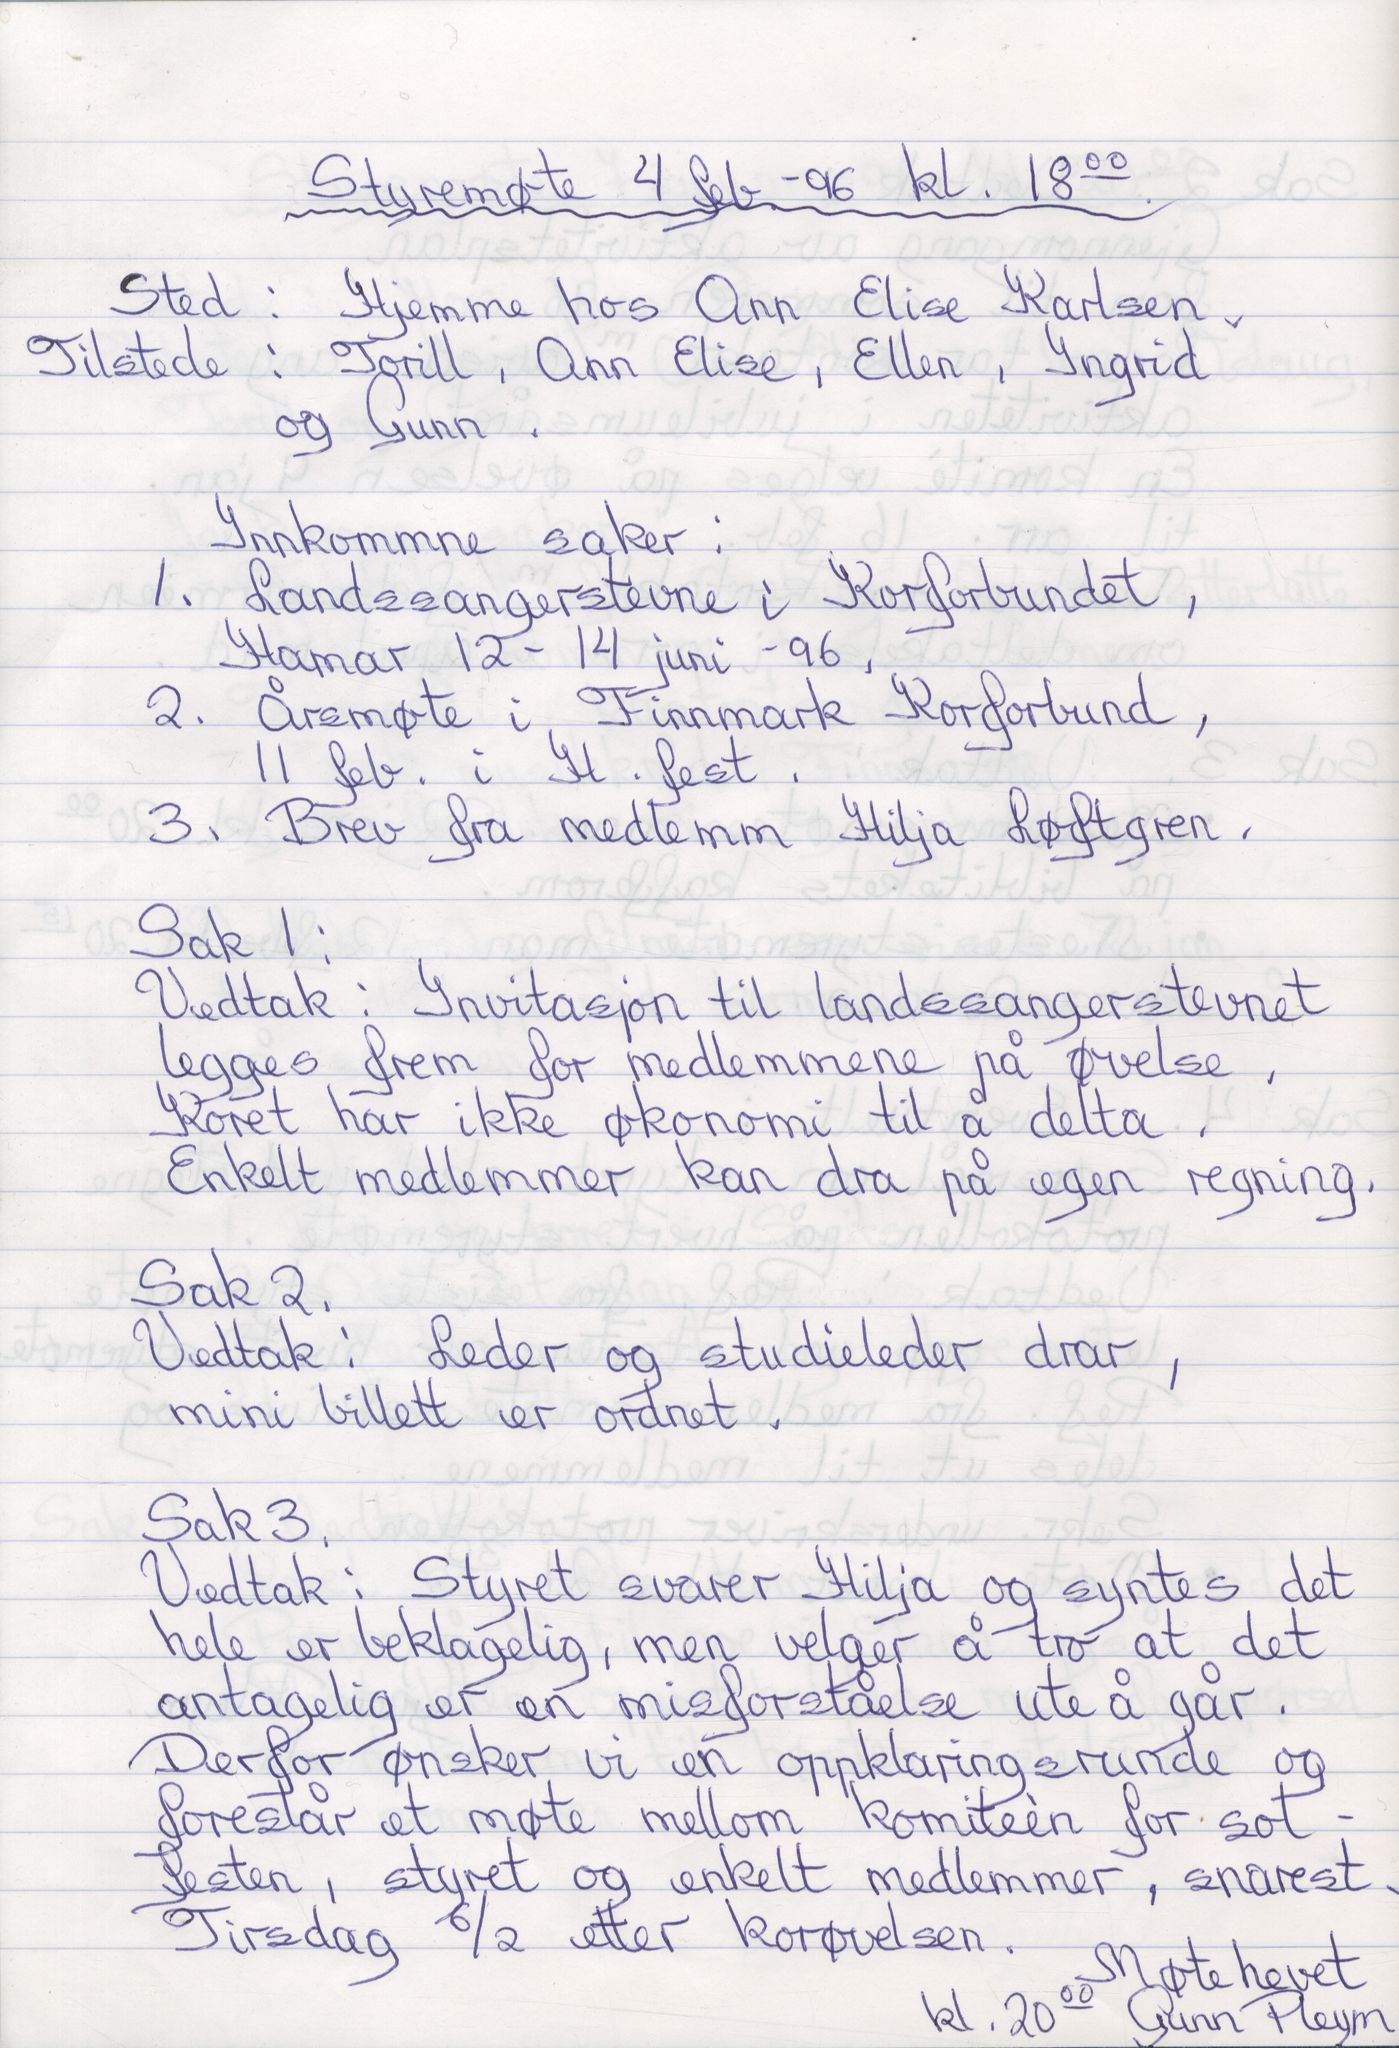 Styremøte 4 feb -96 kl. 18⁰⁰.
Sted : Hjemme hos Ann Elise Karlsen.
Tilstede : Torill, Ann Elise, Ellen, Yngrid
og Gunn.
Innkommne saker :
1. Landssangerstevne i Korforbundet,
Hamar 12 - 14 juni -96.
2. Årsmøte i Finnmark Korforbund,
11 feb. i H. fest.
3. Brev fra medlemm Hilja Løftgren.
Sak 1:
Vedtak : Invitasjon til landssangerstevnet
legges frem for medlemmene på øvelse.
Koret har ikke økonomi til å delta.
Enkelt medlemmer kan dra på egen regning.
Sak 2.
Vedtak : Leder og studieleder drar,
mini billett er ordnet.
Sak 3.
Vedtak : Styret svarer Hilja og syntes det
hele er beklagelig, men velger å tro at det
antagelig er en misforståelse ute å går.
Derfor ønsker vi en oppklaringsrunde og
forestår et møte mellom komiteèn for sol -
festen, styret og enkelt medlemmer, snarest.
Tirsdag 6/2 etter korøvelsen.
Møte hevet
kl. 20⁰⁰ Gunn Pleym